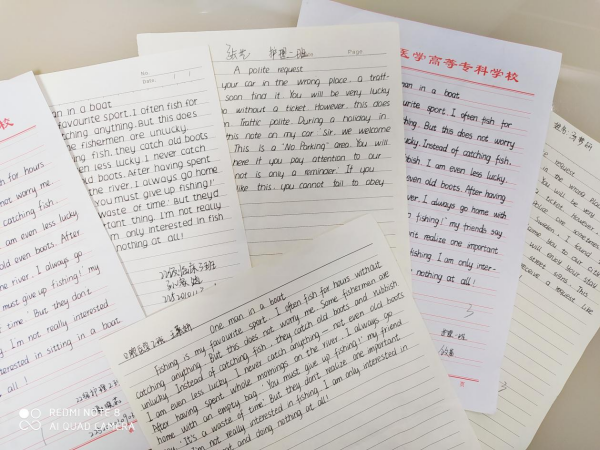 校
h for hours
not worry me.
catching fish.
am even less lucky
old even boots. After
he river. I always go
must give up fishing!' my
te time.' But they don't
ly. I'm not really interested
terested in sitting in a boat
all!
No.
Date
an in a boat
favourite sport. I often fish for
thing anything. But this does
e fishermen are unlucky.
ng fish, they catch old boots
even less lucky. I never catch
old boots. After having spent
the river. I always go home
You must give up fishing!'
waste of time.' But they'd
tant thing. I'm not really
m only interested in fish
nothing at all!
Page
A polite request
your car in the wrong place, a traff-
soon find it. You will be very lucky
o without a ticket. However, this does
n. Traffic polite. During a holiday in
this note on my car: 'Sir, we welcome
This is a "No Parking" area. You will
here if you pay attention to our
not is only a reminder.' If you
like this, you cannot fail to obey
医学高等专科学校
an in a boat
urite sport. I often fish for
thing. But this does not worry
nlucky. Instead of catching fish,
bbish. I am even less lucky.
even old boots. After having
he river, I always go home with
p fishing!' my friends say
don't realize one important
fishing. I am only inter-
nothing at all!
request
in the wrong place
You will be very
a ticket. However,
Sweden, I found
come you to our city
enjoy your stay
street signs. This
receive a request like
One man in a boat
Fishing is my favourite sport. I often fish for hours without
catching anything. But this does not worry me. Some fishermen are
unlucky. Instead of catching fish, they catch old boots and rubbish.
I am even less lucky. I never catch anything — not even old boots.
After having spent whole mornings on the river, I always go
home with an empty bag. 'You must give up fishing!' my friend
say. 'It's a waste of time.' But they don't realize one important
I'm not really interested in fishing. I am only interested in
t and doing nothing at all!
REDMI NOTE 8
AI QUAD CAMERA